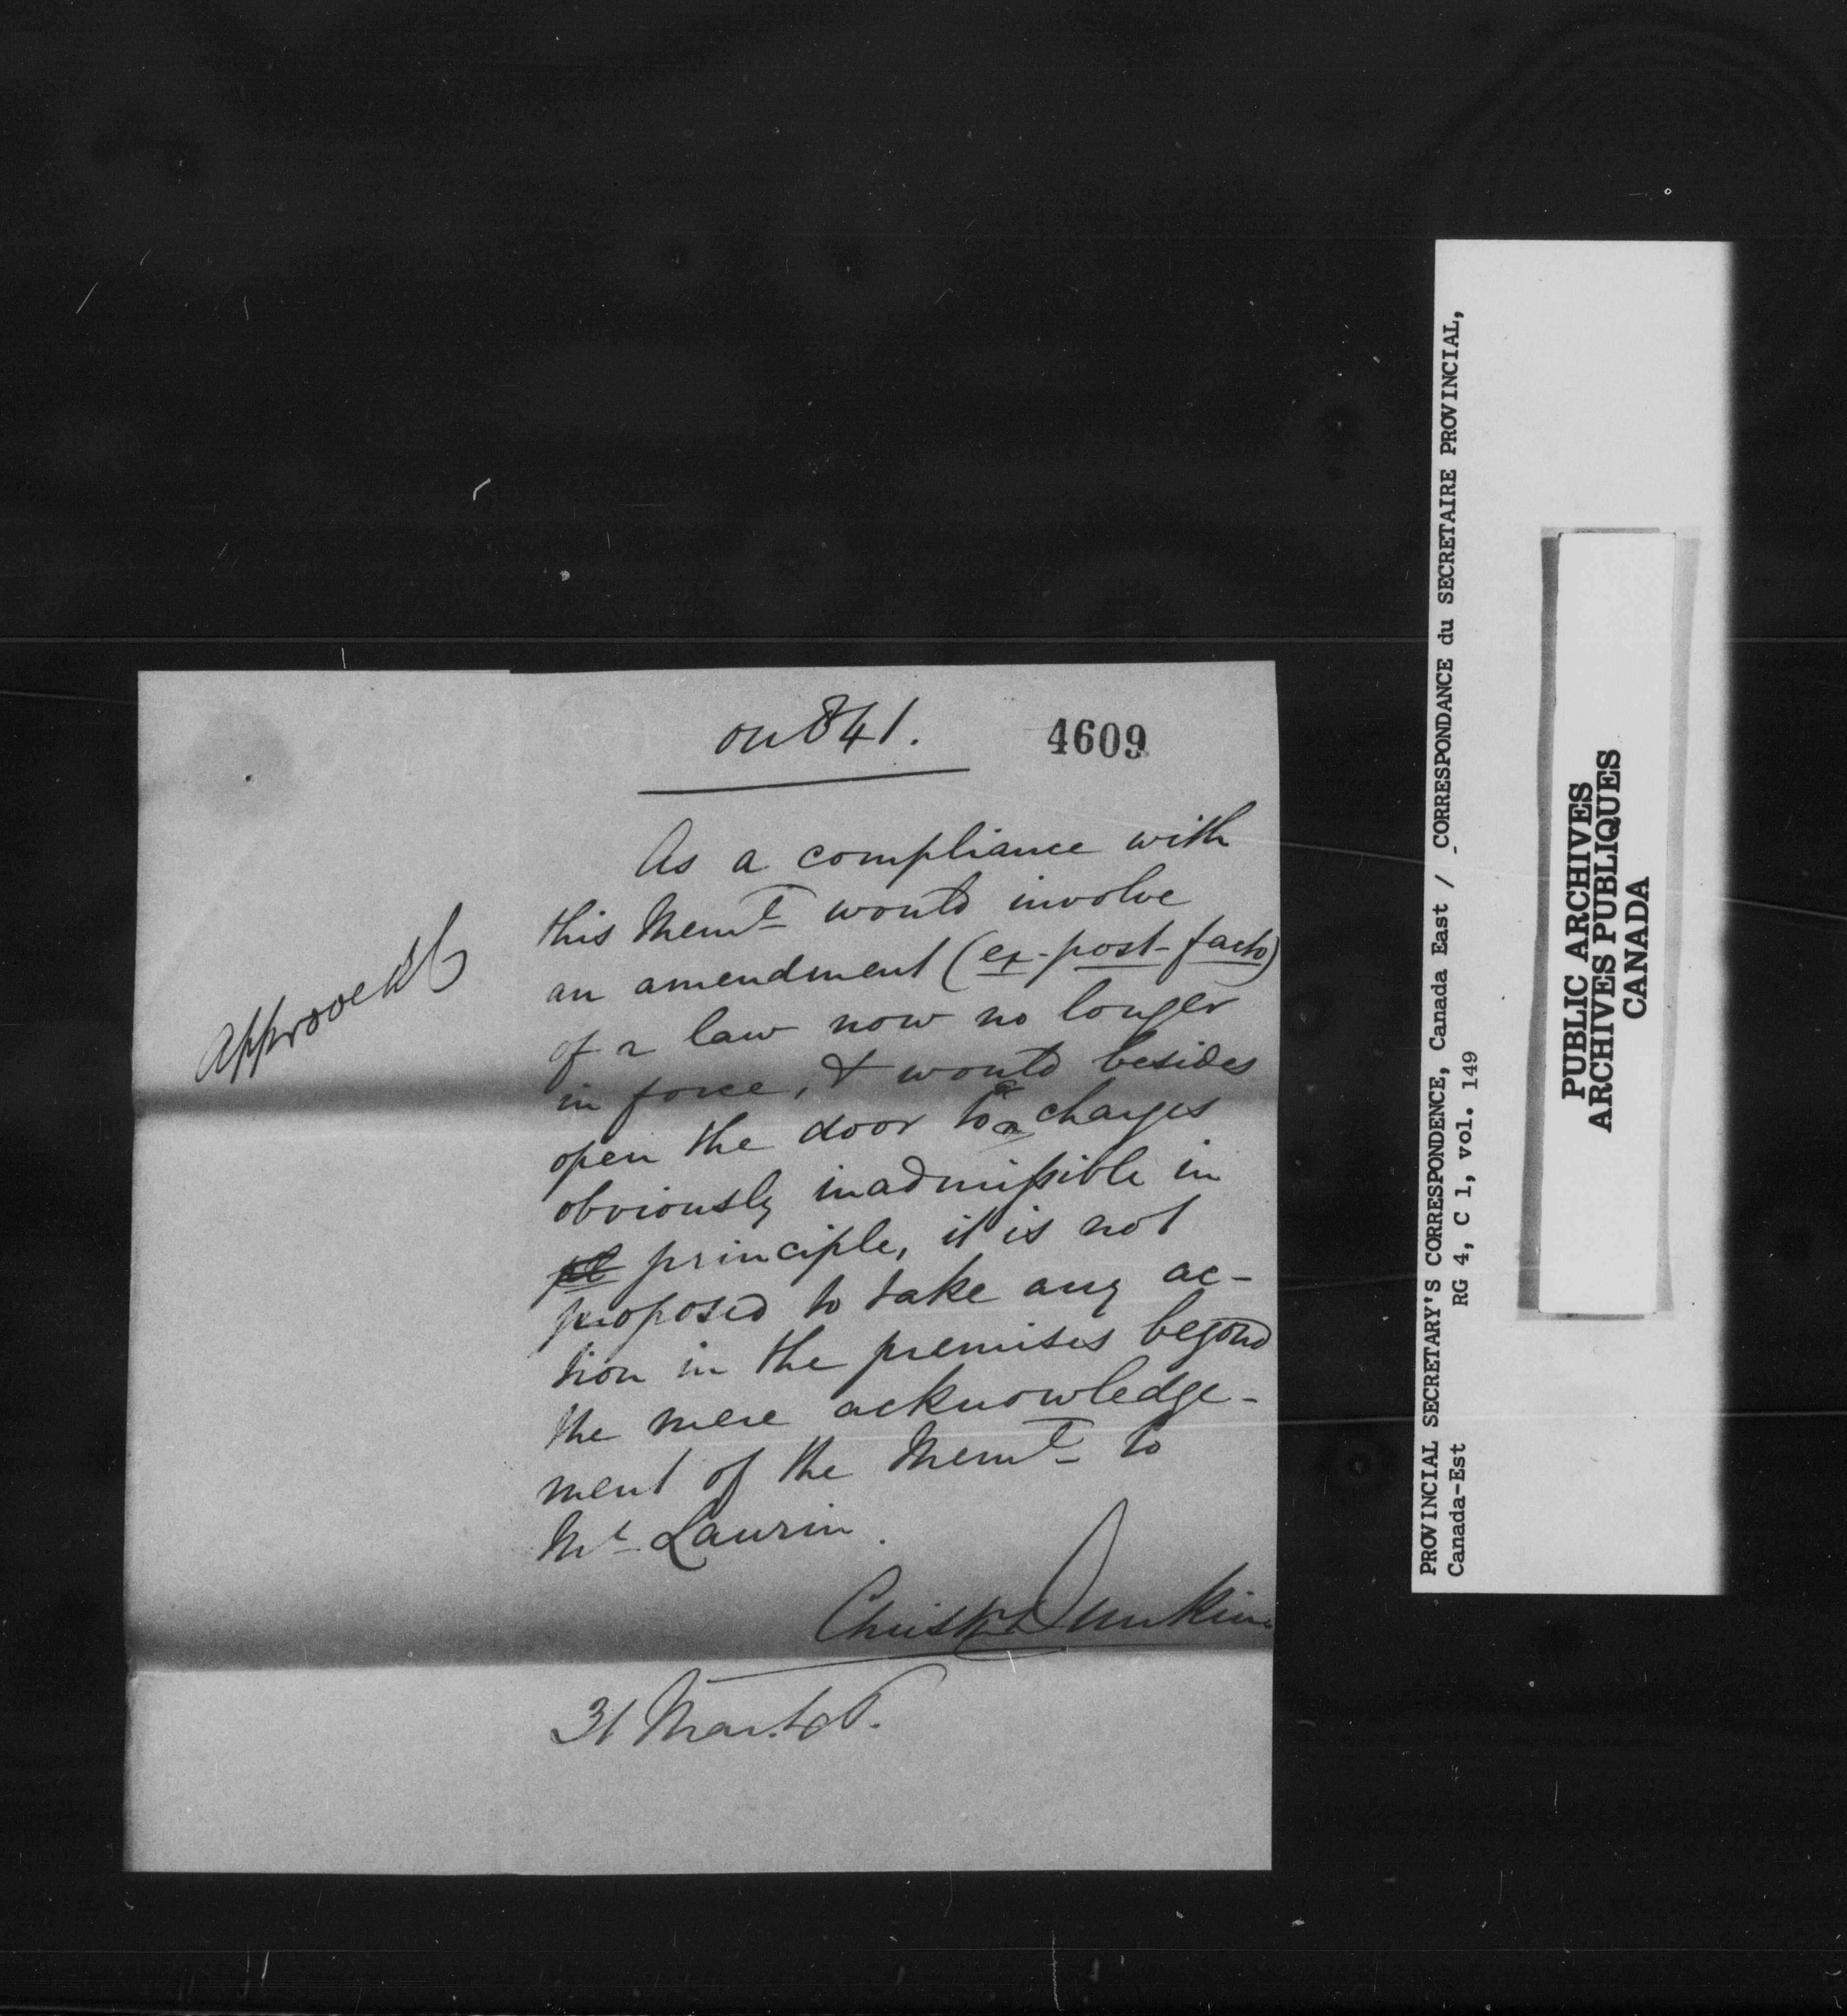 on 841.
4609
As a compliance with
this Mem^l would involve
an amendment (ex-post-facto)
of a law now no longer
in force, & would besides
open the door to charges
obviously inadmissible in
principle, it is not
proposed to take any ac-
tion in the premises beyond
the mere acknowledge-
ment of the Mem^l to
M^r Laurin.
Christ^r Dunkin
31 Mar.
Approved
PROVINCIAL SECRETARY'S CORRESPONDENCE, Canada East / CORRESPONDANCE du SECRETAIRE PROVINCIAL,
Canada-Est RG 4, C 1, vol. 149
PUBLIC ARCHIVES
ARCHIVES PUBLIQUES
CANADA